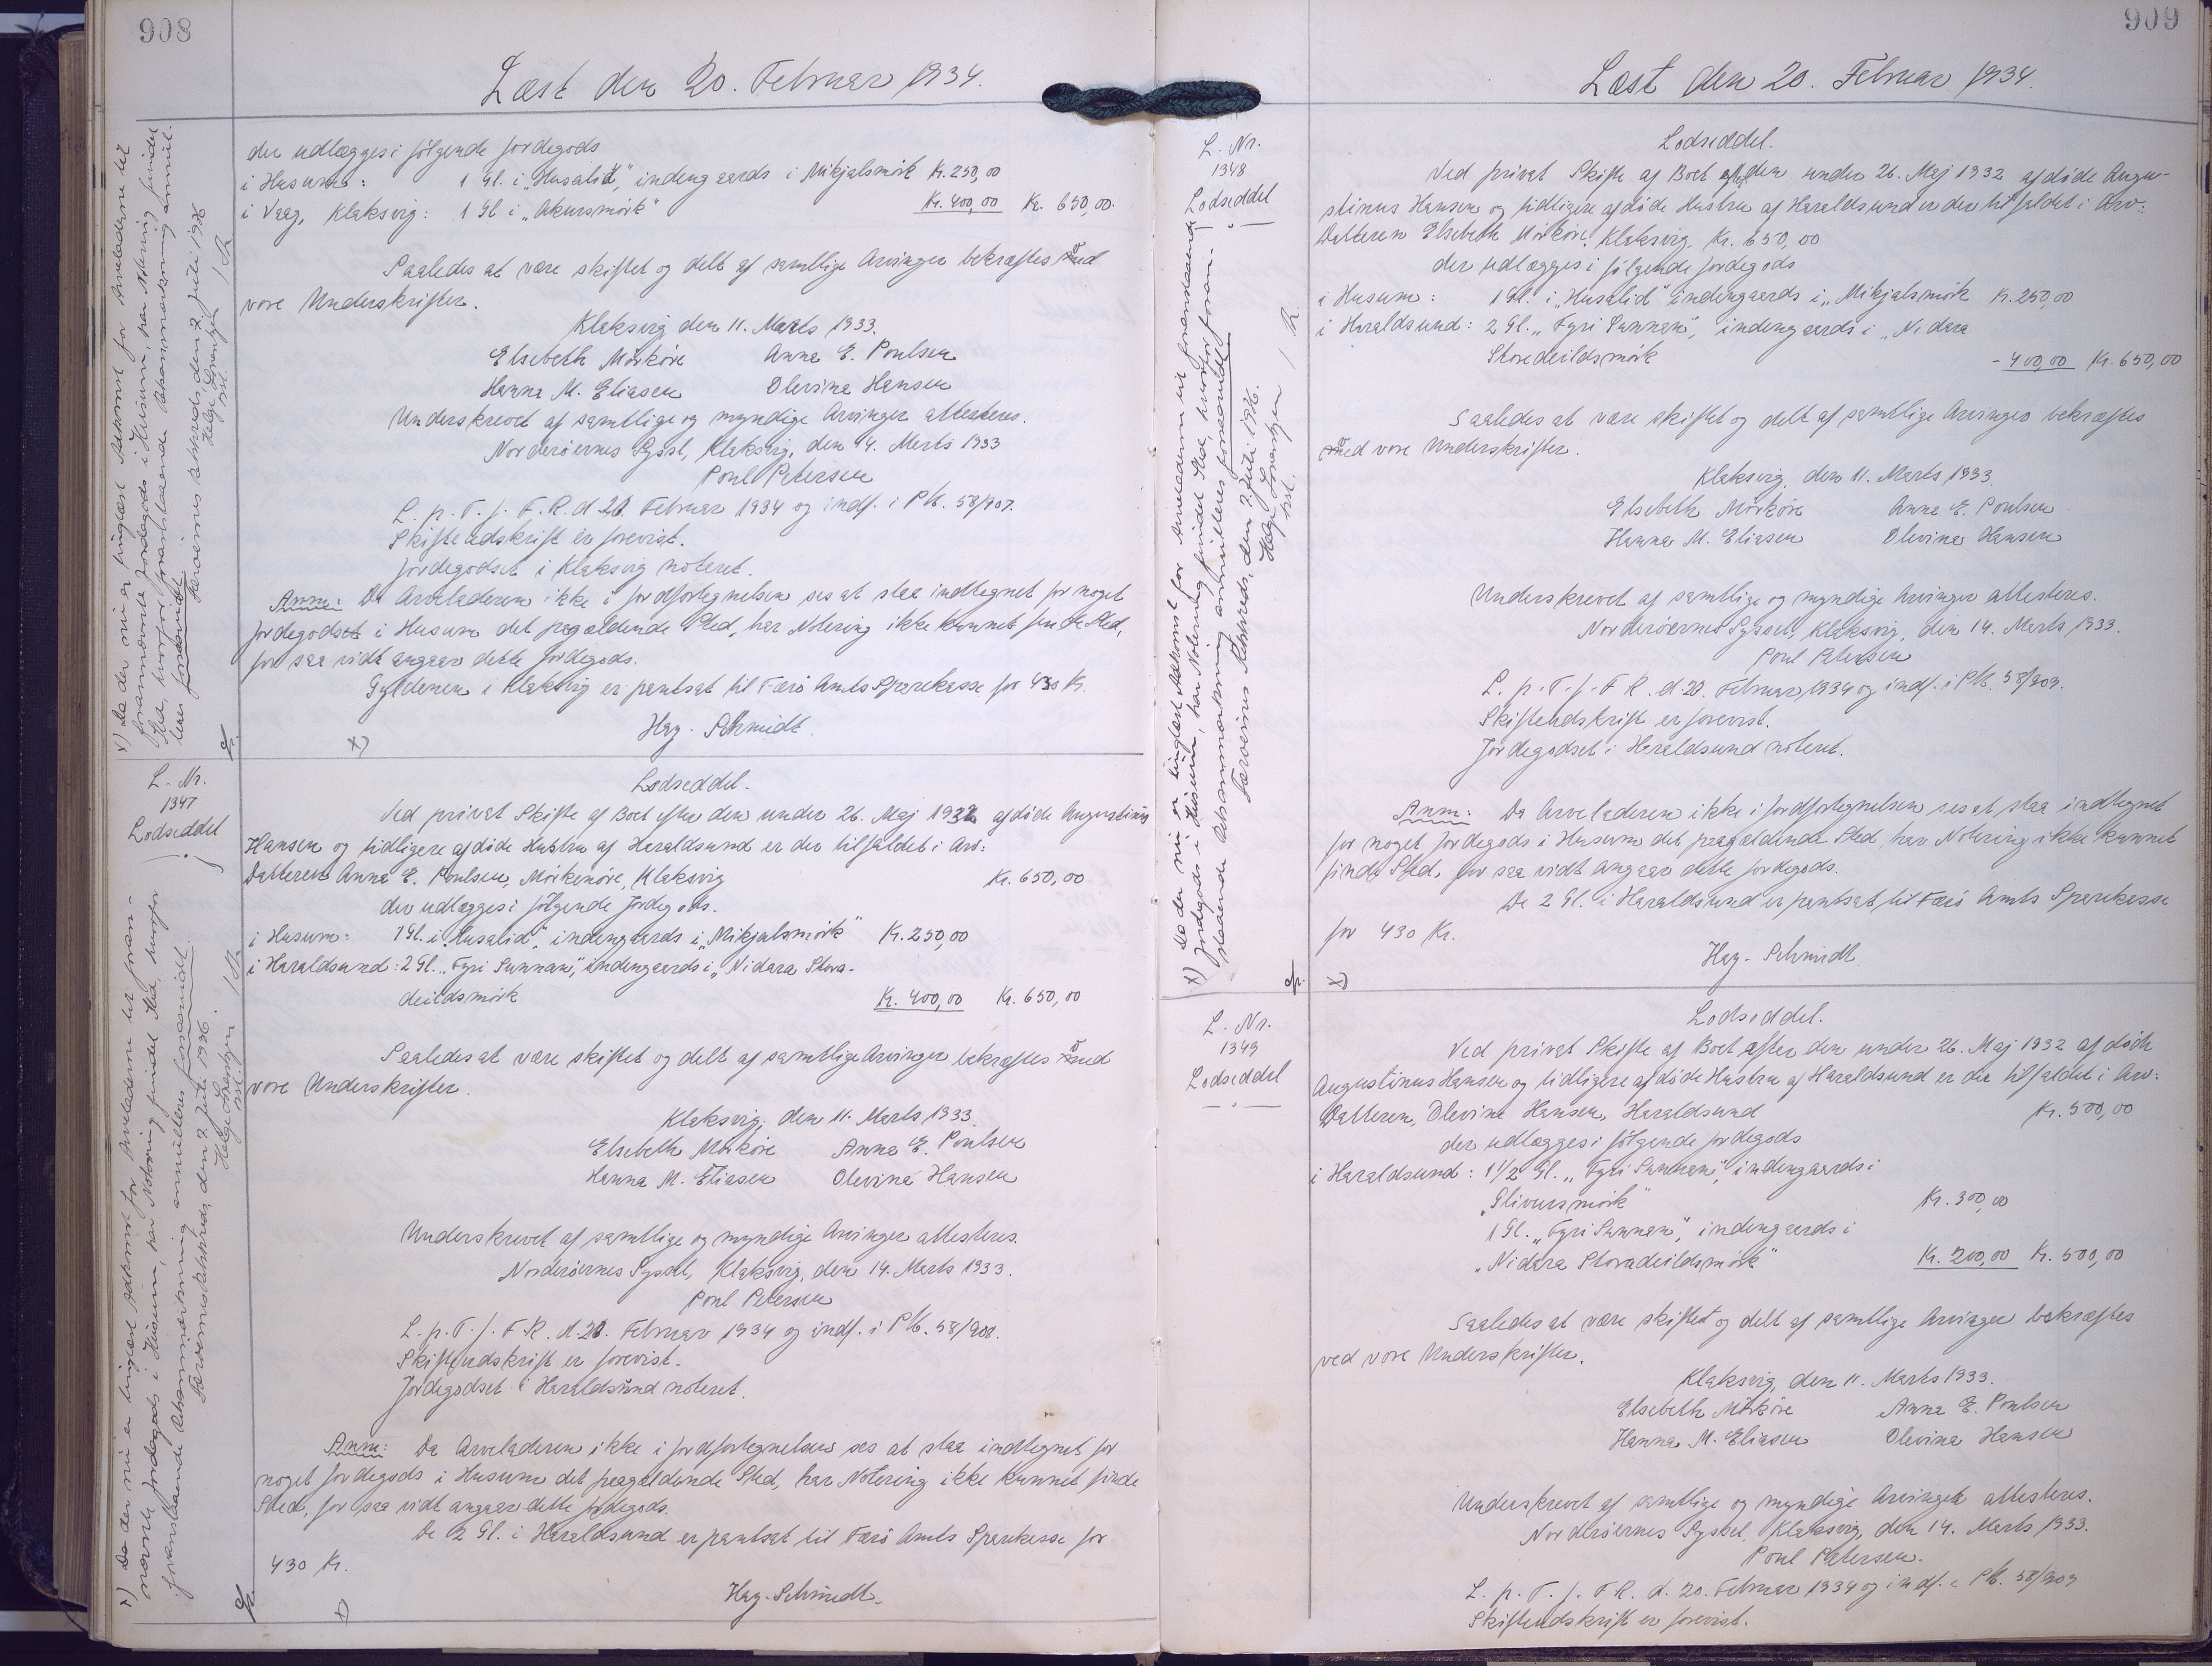 908
Læst den 20. Februar 1934.
der udlægges i følgende Jordegods
i Husum: 1 Gl. i „Husalid", indengaards i Mikjalsmörk Kr. 250,00
i Vaag, Klaksvig: 1 Gl i „Akursmörk" Kr. 400,00 Kr. 650,00.
Saaledes at være skiftet og delt af samtlige Arvinger bekræftes ved
vore Underskrifter.
Klaksvig den 11. Marts 1933.
Elsebeth Mörköre Anna E. Poulsen
Hanna M. Eliasen Olevina Hansen
Underskrevet af samtlige og myndige Arvinger attesteres.
Norderöernes Syssel, Klaksvig, den 14. Marts 1933
Poul Petersen
L. p. T. f. F. R. d. 20. Februar 1934 og indf. i Pb. 58/907.
Skifteudskrift er forevist.
Jordegodset i Klaksvig noteret.
Anm: Da Arveladeren ikke i Jordfortegnelsen ses at staa indtegnet for noget
Jordegodset i Husum det pågældende Sted, har Notering ikke kunnet finde Sted,
for saa vidt angaar dette Jordegods.
Gyldenen i Klaksvig er pantsat til Færö Amts Sparekasse for 430 Kr.
Hag. Schmidt.
x)
x) Da der nu er tinglæst Adkomst for Arveladeren til
forannævnte Jordegods i Husum, har Notering fundet
Sted, hvorfor foranstaaende Retsanmærkning annul-
leres foranmeldt
Færøernes Retskreds, den 2. Juli 1936
Helge Lorentzen
cst.
L. Nr.
1347
Lodseddel
Lodseddel.
Ved privat Skifte af Boet efter den under 26. Maj 1932 afdöde Augustinus
Hansen og tidligere afdöde Hustru af Haraldsund er der tilfaldet i Arv:
Datteren Anna E. Poulsen, Mörkenöre, Klaksvig Kr. 650,00
der udlægges i følgende Jordegods.
i Husum: 1 Gl. i „Husalid", indengaards i „Mikjalsmörk" Kr. 250,00
i Haraldsund: 2 Gl. „Fyri Sunnan", indengaards i „Nidara Stora-
deildsmörk Kr. 400,00 Kr. 650,00
Saaledes at være skiftet og delt af samtlige Arvinger bekræftes ved
vore Underskrifter.
Klaksvig, den 11. Marts 1933.
Elsebeth Mörköre Anna E. Poulsen
Hanna M. Eliasen Olevina Hansen
Underskrevet af samtlige og myndige Arvinger attesteres.
Norderöernes Syssel, Klaksvig, den 14. Marts 1933.
Poul Petersen
L. p. T. f. F. R. d. 20. Februar 1934 og indf. i Pb. 58/908.
Skifteudskrift er forevist.
Jordegodset i Haraldsund noteret.
Anm: Da Arveladeren ikke i Jordfortegnelsen ses at staa indtegnet for
noget Jordegods i Husum det pågældende Sted, har Notering ikke kunnet finde
Sted, for saa vidt angaar dette Jordegods.
De 2 Gl. i Haraldsund er pantsat til Færö Amts Sparekasse for
430 Kr.
Hag. Schmidt.
x)
x) Da der nu er tinglæst Adkomst for Arveladeren til foran-
nævnte Jordegods i Husum, har Notering fundet Sted, hvorfor
foranstaaende Retsanmærkning annulleres foranmeldt.
Færøernes Retskreds, den 2. Juli 1936.
Helge Lorentzen
cst.
909
Læst den 20. Februar 1934.
L. Nr.
1348
Lodseddel
Lodseddel.
Ved privat Skifte af Boet efter den under 26. Maj 1932 afdöde Augu-
stinus Hansen og tidligere afdöde Hustru af Haraldsund er der tilfaldet i Arv:
Datteren Elsebeth Mörköre, Klaksvig, Kr. 650,00
der udlægges i følgende Jordegods
i Husum: 1 Gl. i „Husalid" indengaards i „Mikjalsmörk Kr. 250,00
i Haraldsund: 2 Gl. „Fyri Sunnan", indengaards i „Nidara
Storadeildsmörk - 400,00 Kr. 650,00
Saaledes at være skiftet og delt af samtlige Arvinger bekræftes
ved vore Underskrifter.
Klaksvig, den 11. Marts 1933.
Elsebeth Mörköre Anna E. Poulsen
Hanna M. Eliasen Olevina Hansen
Underskrevet af samtlige og myndige Arvinger attesteres.
Norderöernes Syssel, Klaksvig, den 14. Marts 1933.
Poul Petersen
L. p. T. f. F. R. d. 20. Februar 1934 og indf. i Pb. 58/909.
Skifteudskrift er forevist.
Jordegodset i Haraldsund noteret.
Anm: Da Arveladeren ikke i Jordfortegnelsen ses at staa indtegnet
for noget Jordegods i Husum det pågældende Sted, har Notering ikke kunnet
finde Sted, for saa vidt angaar dette Jordegods.
De 2 Gl. i Haraldsund er pantsat til Færö Amts Sparekasse
for 430 Kr.
Hag. Schmidt.
x)
x) Da der nu er tinglæst Adkomst for Arveladeren til forannævnte
Jordegods i Husum, har Notering fundet Sted, hvorfor foran-
staaende Retsanmærkning annulleres foranmeldt.
Færøernes Retskreds, den 2. Juli 1936.
Helge Lorentzen
cst.
L. Nr.
1349
Lodseddel
Lodseddel.
Ved privat Skifte af Boet efter den under 26. Maj 1932 afdöde
Augustinus Hansen og tidligere afdöde Hustru af Haraldsund er der tilfaldet i Arv:
Datteren, Olevina Hansen, Haraldsund Kr. 500,00
der udlægges i følgende Jordegods
i Haraldsund: 1 1/2 Gl. „Fyri Sunnan", indengaards i
„Glivursmörk" Kr. 300,00
1 Gl. „Fyri Sunnan", indengaards i
„Nidara Storadeildsmörk" Kr. 200,00 Kr. 500,00
Saaledes at være skiftet og delt af samtlige Arvinger bekræftes
ved vore Underskrifter.
Klaksvig, den 11. Marts 1933.
Elsebeth Mörköre Anna E. Poulsen
Hanna M. Eliasen Olevina Hansen
Underskrevet af samtlige og myndige Arvinger attesteres.
Norderöernes Syssel, Klaksvig, den 14. Marts 1933.
Poul Petersen.
L. p. T. f. F. R. d. 20. Februar 1934 og indf. i Pb. 58/909
Skifteudskrift er forevist.